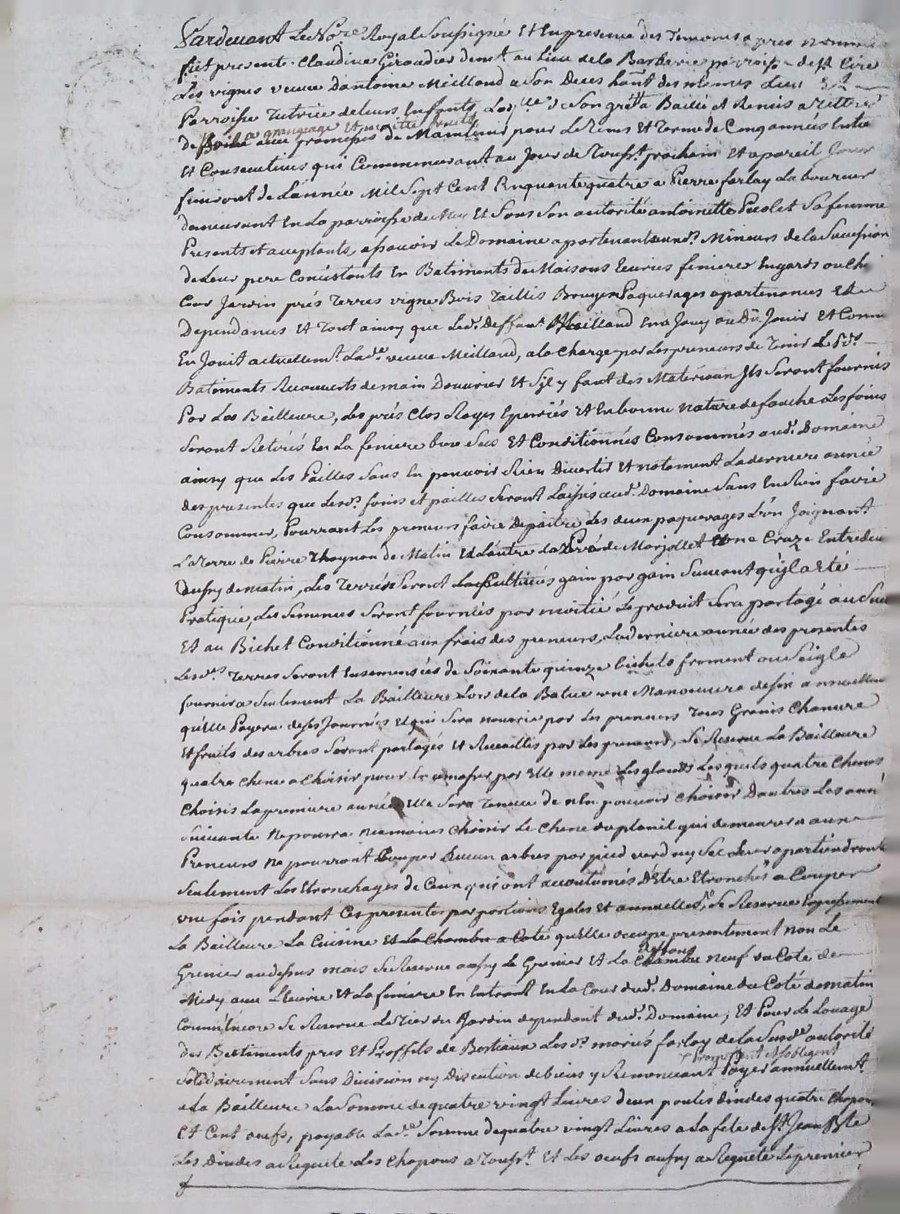 Pardevant Le No.re Royal Soussigné Et En presence des Temoins apres nommés
fut presente Claudine Giraudier dem.t au Lieu de la Barberie parroisse de S.t Cire
Les vignes veuve d'antoine Meilland a Son Deces ha.nt des mêmes Lieu Et
Parroisse Tutrice de leurs Enfants, Laq.lle de Son gré a Baillé et Remis a Tittre
de grangeage et moitié fruits
avec promesses de Maintenir pour Le Tems et Terme de Cinq années Entieres
Et Consecutives qui Commenceront au Jour de Touss.t prochain Et a pareil Jour
finiront de L'année Mil Sept Cent Cinquante quatre a Pierre farlay Laboureur
demeurant En La parroisse de Et Sous Son autorité antoinette Sa femme
Presents et acceptants, a Scavoir Le Domaine apartenant aux d.s Mineurs de la Succession
de Leur pere Consistants En Batiments de Maisons Ecuries feniere Engards
Cour Jardin prés Terres vigne Bois Taillis Bruyere Paquerages apartenances Et
Dependances Et Tout ainsy que Led. deffunt Meilland En a Jouy ou Dû Jouir Et Comme
En Jouit actuellem.t Lad.e veuve Meilland, a la Charge par Les preneurs de Tenir Le Sd.s
Batiments Recouverts de main Douvrier Et S'il y faut des Materiaux Ils Seront fournis
Par La Bailleure, Les prés Clos Rayés Eperriés Et En bonne nature de fauche Les foins
Seront Retirés En La feniere bien Secs Et Conditionnés Consommés aud. Domaine
ainsy que Les Pailles Sans En pouvoir Rien Divertir Et notament La derniere année
des presentes que Lesd. foins et pailles Seront Laissés aud. Domaine Sans En Rien faire
Consommer, Pourront Les preneurs faire depaitre Les deux paquerages L'un Joignant
La Terre de Pierre Thoynon de Matin Et L'autre La de Marjollet Une Craze Entredeux
de matin, Les Terres Seront Cultivées gain par gain Suivant qu'il a Eté
Pratiqué, Les Semences Seront fournies par moitié Le produit Sera partagé au
Et au Bichet Conditionné aux frais des preneurs, La derniere année des presentes
Lesd.es Terres Seront Ensemensées de Soixante quinze bichets froment ou Seigle
fournira Seulement La Bailleure Lors de la Batue une Manoeuvre
qu'elle Payera de Ses Journées Et qui Sera nourrie par Les preneurs Tous Grains Chanvre
Et fruits des arbres Seront partagés Et Recueillis par Les preneurs, Se Reserve La Bailleure
quatre chenes a Choisir pour par Elle meme Les glands Lesquels quatre Chenes
Choisis La premiere année Elle Sera Tenue de n'en pouvoir Choisir D'autres Les années
Suivante ne pourra neamoins Choisir Le Chene du planil qui demeurera aux
Preneurs ne pourront Couper Aucun arbres par pied verd ny Sec Leur apartiendront
Seulement Les Etronchages de Ceux qui ont accoutumés D'Etre Etronchés a Couper
une fois pendant Ces presentes par portions Egales Et annuelles, Se Reserve Expressement
La Bailleure La Cuisine Et La Chambre a Coté qu'Elle occupe presentement non Le
Grenier au dessus mais Se Reserve aussy Le Grenier Et La Chambre neuf du Coté de
Midy avec L'Ecurie Et La feniere En Entrant En La Cour dud. Domaine du Coté de matin
Comm'Encore Se Reserve Le Tier du Jardin dependant dud. Domaine; Et Pour Le Louage
des Batiments prés Et Proffits de Bestiaux Les d. mariés farlay de La Susd.e autorité
promettent Et S'obligent
Solidairement Sans Division ny Discution de biens y Renonceant Payer annuellem.t
a La Bailleure La Somme de quatre vingt Livres deux poules dindes quatre chapons
Et Cent oeufs, payable Lad.e Somme de quatre vingt Livres a La fête de S.t Jean Bte
Les Dindes a Requete Les Chapons a Touss.t Et Les oeufs aussy a Requête Le premier